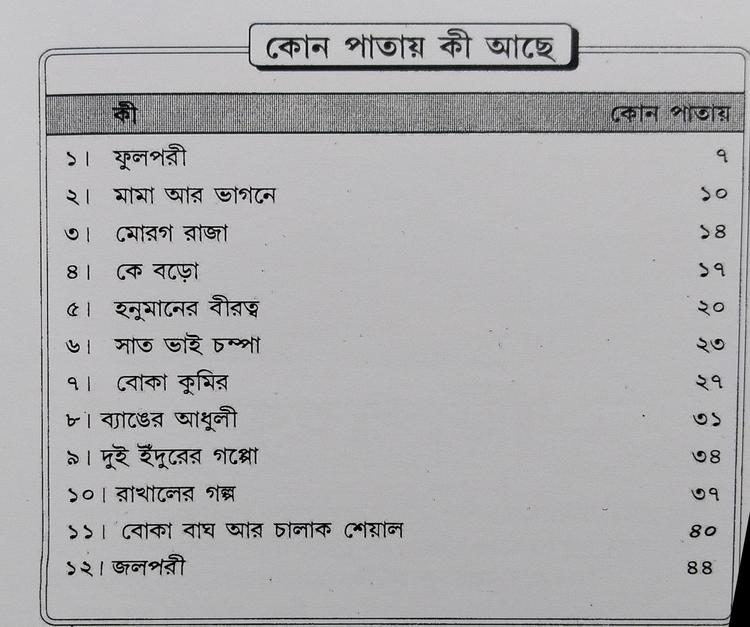 কোন পাতায় কী আছে
কী কোন পাতায়
১। ফুলপরী ৭
২। মামা আর ভাগনে ১০
৩। মোরগ রাজা ১৪
৪। কে বড়ো ১৭
৫। হনুমানের বীরত্ব ২০
৬। সাত ভাই চম্পা ২৩
৭। বোকা কুমির ২৭
৮। ব্যাঙের আধুলী ৩১
৯। দুই ইঁদুরের গপ্পো ৩৪
১০। রাখালের গল্প ৩৭
১১। বোকা বাঘ আর চালাক শেয়াল ৪০
১২। জলপরী ৪৪